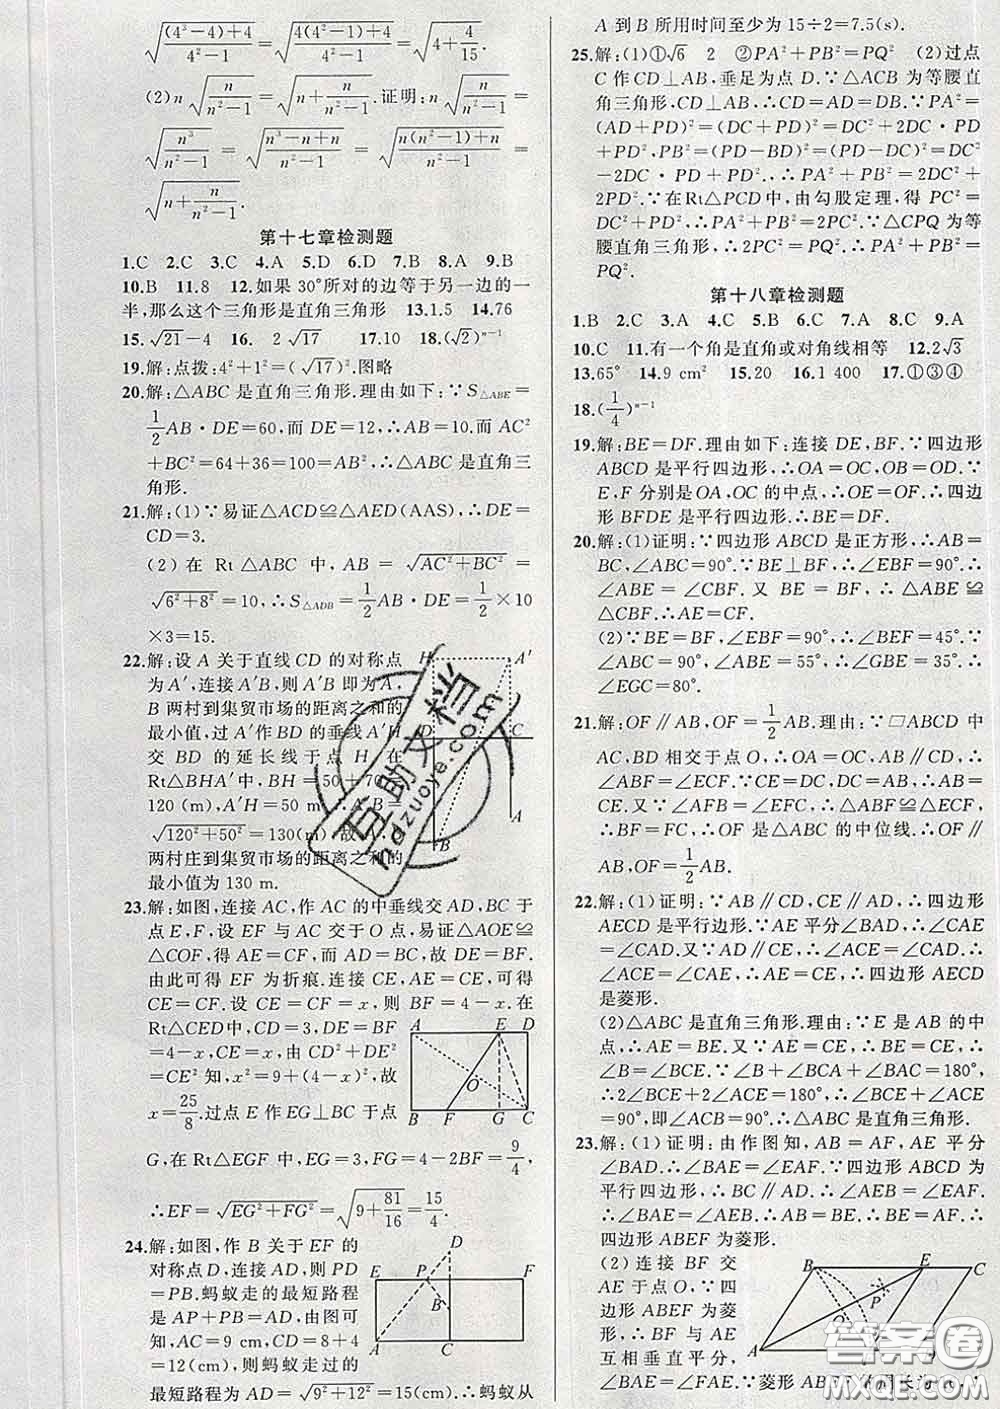 √((4³−4)+4)/(4²−1) = √(4(4²−1)+4)/(4²−1) = √(4+4/15).
(2) n√(n/(n²−1)) = √(n+n/(n²−1)).证明:n√(n/(n²−1)) =
√(n³/(n²−1)) = √((n³−n+n)/(n²−1)) = √((n(n²−1)+n)/(n²−1)) =
√(n+n/(n²−1)).
第十七章检测题
1.C 2.C 3.C 4.A 5.D 6.D 7.B 8.A 9.B
10.B 11.8 12.如果 30°所对的边等于另一边的一
半,那么这个三角形是直角三角形 13.1.5 14.76
15.√21−4 16. 2√17 17.10 18.(√2)ⁿ⁻¹
19.解:点拨:4²+1²=(√17)².图略
20.解:△ABC 是直角三角形.理由如下:∵S△ABE=
1/2 AB·DE=60,而 DE=12,∴AB=10.而 AC²
+BC²=64+36=100=AB²,∴△ABC 是直角三
角形.
21.解:(1)∵易证△ACD≌△AED(AAS),∴DE=
CD=3.
(2)在 Rt△ABC 中,AB=√(AC²+BC²)=
√(6²+8²)=10,∴S△ADB=1/2 AB·DE=1/2×10
×3=15.
22.解:设 A 关于直线 CD 的对称点
为 A′,连接 A′B,则 A′B 即为 A,
B 两村到集贸市场的距离之和的
最小值,过 A′作 BD 的垂线 A′H
交 BD 的延长线于点 H,在
Rt△BHA′中,BH=50+70=
120(m),A′H=50 m, B=
√(120²+50²)=130(m),故 A,
两村庄到集贸市场的距离之和的
最小值为 130 m.
H A′ D C A B
23.解:如图,连接 AC,作 AC 的中垂线交 AD,BC 于
点 E,F,设 EF 与 AC 交于 O 点,易证△AOE≌
△COF,得 AE=CF,而 AD=BC,故 DE=BF.
由此可得 EF 为折痕.连接 CE,AE=CE,可得
CE=CF.设 CE=CF=x,则 BF=4−x.在
Rt△CED中,CD=3,DE=BF
=4−x,CE=x,由 CD²+DE²
=CE² 知,x²=9+(4−x)².故
x=25/8.过点 E 作 EG⊥BC 于点
A E D O B F G C
G,在 Rt△EGF 中,EG=3,FG=4−2BF=9/4,
∴EF=√(EG²+FG²)=√(9+81/16)=15/4.
24.解:如图,作 B 关于 EF 的
对称点 D,连接 AD,则 PD
=PB.蚂蚁走的最短路程
是 AP+PB=AD,由图可
知,AC=9 cm,CD=8+4
=12(cm),则蚂蚁走过的
D E P F B A C
最短路程为 AD=√(9²+12²)=15(cm).∴蚂蚁从
A 到 B 所用时间至少为 15÷2=7.5(s).
25.解:(1)①√6 2 ②PA²+PB²=PQ² (2)过点
C 作 CD⊥AB,垂足为点 D.∵△ACB 为等腰直
角三角形,CD⊥AB,∴CD=AD=DB.∵PA²=
(AD+PD)²=(DC+PD)²=DC²+2DC·PD
+PD²,PB²=(PD−BD)²=(PD−DC)²=DC²
−2DC·PD+PD²,∴PA²+PB²=2DC²+
2PD².∵在Rt△PCD 中,由勾股定理,得 PC²=
DC²+PD²,∴PA²+PB²=2PC².∵△CPQ 为等
腰直角三角形,∴2PC²=PQ²,∴PA²+PB²=
PQ².
第十八章检测题
1.B 2.C 3.A 4.C 5.B 6.C 7.A 8.C 9.A
10.C 11.有一个角是直角或对角线相等 12.2√3
13.65° 14.9 cm² 15.20 16.1 400 17.①③④
18.(1/4)ⁿ⁻¹
19.解:BE=DF.理由如下:连接 DE,BF.∵四边形
ABCD 是平行四边形,∴OA=OC,OB=OD.∵
E,F 分别是OA,OC 的中点,∴OE=OF.∴四边
形 BFDE 是平行四边形.∴BE=DF.
20.解:(1)证明:∵四边形 ABCD 是正方形,∴AB=
BC,∠ABC=90°.∵BE⊥BF,∴∠EBF=90°.∴
∠ABE=∠CBF.又 BE=BF,∴△ABE≌
△CBF.∴AE=CF.
(2)∵BE=BF,∠EBF=90°,∴∠BEF=45°.∵
∠ABC=90°,∠ABE=55°,∴∠GBE=35°.∴
∠EGC=80°.
21.解:OF∥AB,OF=1/2 AB.理由:∵▱ABCD 中
AC,BD 相交于点 O,∴OA=OC,AB∥CD,∴
∠ABF=∠ECF.∵CE=DC,DC=AB,∴AB=
CE.又∵∠AFB=∠EFC,∴△ABF≌△ECF,
∴BF=FC,∴OF 是△ABC 的中位线.∴OF∥
AB,OF=1/2 AB.
22.解:(1)证明:∵AB∥CD,CE∥AD,∴四边形
AECD 是平行边形,∵AE 平分∠BAD,∴∠CAE
=∠CAD.又∵AD∥CE,∴∠ACE=∠CAD.∴
∠ACE=∠CAE,∴AE=CE,∴四边形 AECD
是菱形.
(2)△ABC 是直角三角形.理由:∵E 是 AB 的中
点,∴AE=BE.又∵AE=CE,∴BE=CE,∴
∠B=∠BCE.∵∠B+∠BCA+∠BAC=180°,
∴2∠BCE+2∠ACE=180°,∴∠BCE+∠ACE
=90°,即∠ACB=90°,∴△ABC是直角三角形.
23.解:(1)证明:由作图知,AB=AF,AE 平分
∠BAD.∴∠BAE=∠EAF.∵四边形 ABCD 为
平行四边形,∴BC∥AD.∴∠AEB=∠EAF.∴
∠BAE=∠AEB,∴AB=BE.∴BE=AF.∴
四边形 ABEF 为菱形.
(2)连接 BF 交
AE 于点 O,∵四
边形 ABEF 为菱
形,∴BF 与 AE
互相垂直平分,
∠BAE=∠FAE.∵菱形 ABEF
B E C P A
百助文档
hdzuoye.com
答案圈
MXQE.COM